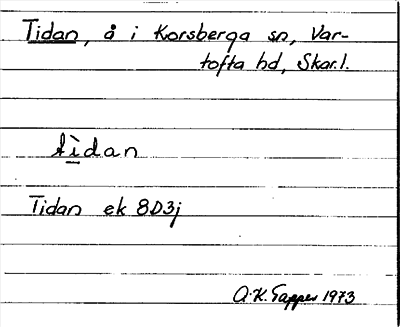 Tidan, å i Korsberga sn, Var-
tofta hd, Skar.l.
tìdan
Tidan ek 8D3j
A.K. Tappes 1973